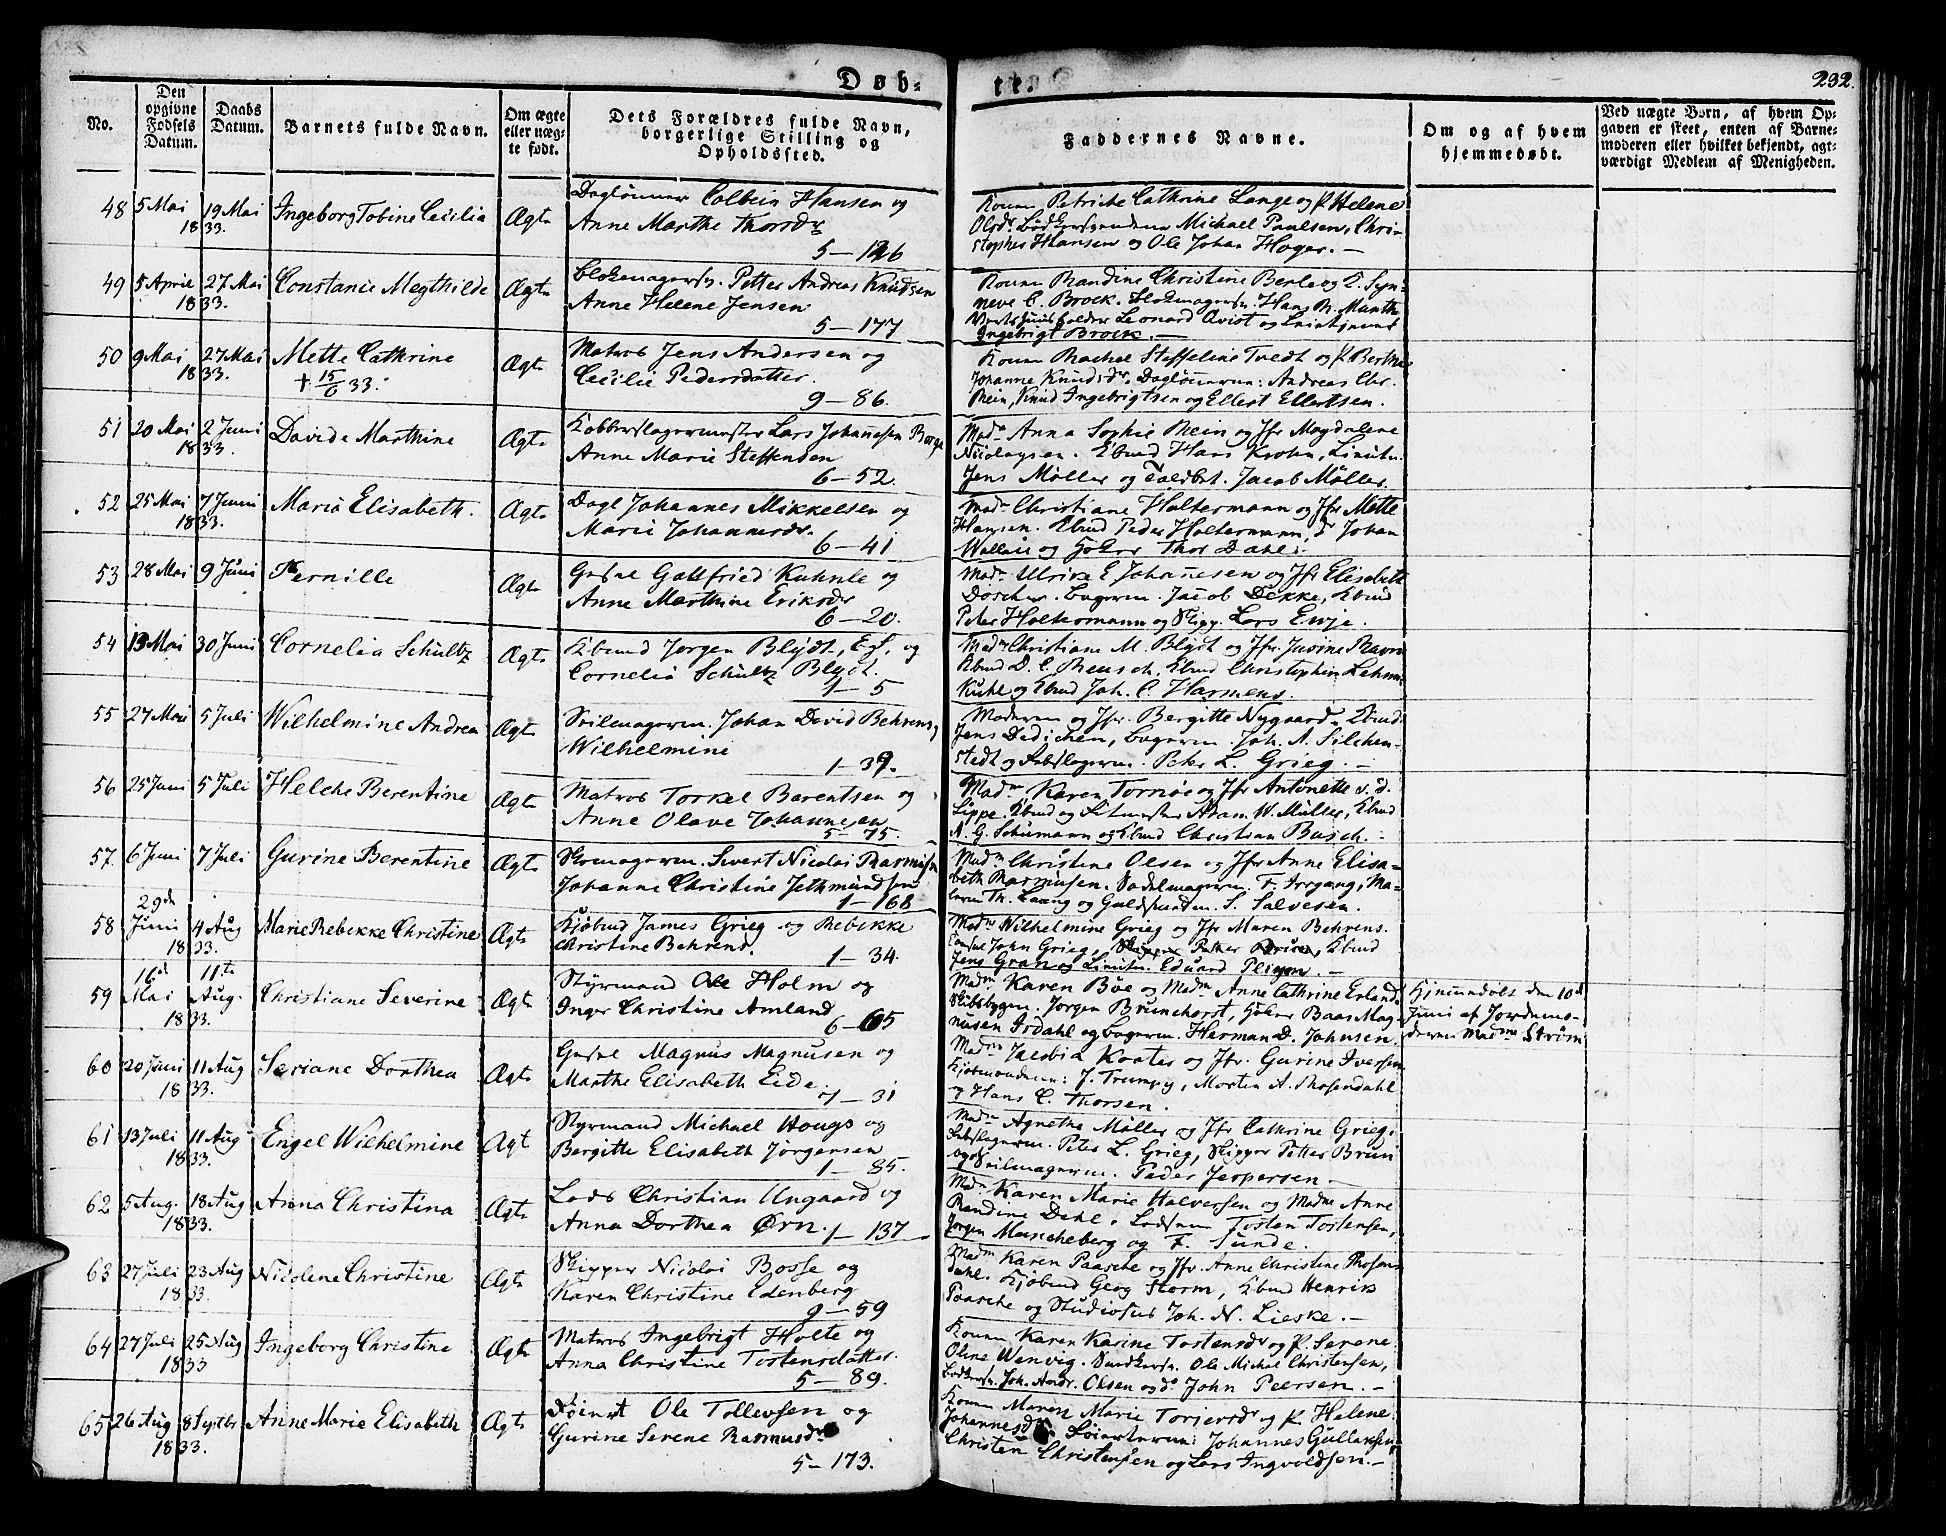 Døb-
te.
232.
No.
Den
opgivne
Fødsels
Datum.
Daabs
Datum.
Barnets fulde Navn.
Om ægte
eller uæg-
te født.
Dets Forældres fulde Navn,
borgerlige Stilling og
Opholdssted.
Faddernes Navne.
Om og af hvem
hjemmedøbt.
Ved uægte Børn, af hvem Op-
gaven er skeet, enten af Barne-
moderen eller hvilket bekjendt, agt-
værdigt Medlem af Menigheden.
48 5 Mai 19 Mai Ingeborg Tobine Cecilia Ægte Daglönner Colbein Hansen og
1833. Anne Marthe Thorsdr
5 — 126
Konen Petriche Cathrine Lange og P. Helene
Olsdr. Michael Paulsen, Chri-
stopher Hansen og Ole Johan Hager. —
49 5 April 27 Mai Constance Megthilde Ægte Blokmagersv. Petter Andreas Knudsen
1833. Anne Helene Jensen
5 — 177
Konen Randine Christine Berle og K. Syn-
neve C. Brock. Blokmagersv. Hans M. Munthe
Leonard Qvist og
Ingebrigt Brock. —
50 9 Mai 27 Mai Mette Cathrine Ægte Matros Jens Andersen og
1833. + 15/6 33. Cecilie Pedersdatter.
9 — 86.
Konen Rachel Steffeline Tvedt og P. Berthe
Johanne Knudsdr. Daglönnerne: Andreas Chr.
Mein, Knud Ingebrigtsen og Ellert Ellertsen.
51 20 Mai 2 Juni Davide Marthine Ægte Kobberslagermester Lars Johannesen Borge
1833. Anne Marie Steffensen
6 — 52.
Madm Anna Sophie Mein og Jfr Magdalene
Nicolaysen. Kbmd Hans Krohn,
Jens Møller og Jacob Møller.
52 25 Mai 7 Juni Marie Elisabeth. Ægte Dagl Johannes Mikkelsen og
1833. Marie Johannesdr.
6 — 41
Madm Christiane Holtermann og Jfr Mette
Hansen. Kbmd Peder Holtermann, Johan
Wallace og Thor Dahl.
53 28 Mai 9 Juni Pernille Ægte Giæstg. Gottfried Kuhnle og
Anne Marthine Eriksdr
6 — 20.
Madm Ulrike E Johannesen og Jfr Elisabeth
Döscher. Bagerm. Jacob Dekke, Kbmd
Peter Holtermann og Skipp. Lars Ewje.
54 13 Mai 30 Juni Cornelia Schültz Ægte Kbmd Jørgen Blydt, og
Cornelia Schültz Blydt.
1 — 5
Madm Christiane M. Blydt og Jfr. Jasine Ravn
Kbmd D. C. Reusch, Kbmd Christopher Lehm-
kuhl og Kbmd Joh. C. Harmens.
55 27 Mai 5 Juli Wilhelmine Andrea Ægte Seilmagerm. Johan David Behrens,
Wilhelmine
1 — 39.
Moderen og Jfr. Bergitte Nygaard. Kbmd
Jens Dedichen, Bagerm. Joh. A. Silchen-
stedt og Peter L. Grieg. —
56 25 Juni 5 Juli Helche Berentine Ægte Matros Torkel Barentsen og
Anne Olave Johannesen
5 — 75.
Madm Karen Tornøe og Jfr Antonette v. d.
Lippe. Kbmd og Adam W. Müller, Kbmd
A. G. Schumann og Kbmd Christian Busch.
57. 6 Juni 7 Juli Gurine Berentine Ægte Skomagerm. Sivert Nicolai Rasmusen
Johanne Christine Jethmundsen
1 — 168
Madm Christine Olsen og Jfr Anne Elisa-
beth Rasmusen. Sadelmagerm. F. Irrgang, Ma-
lerm Th. Laang og Guldsmedm. S. Salvesen.
58 29de Juni 4 Aug Marie Rebekke Christine Ægte Kjöbmd James Grieg og Rebekke
1833. Christine Behrens.
1 — 34.
Madm Wilhelmine Grieg og Jfr Maren Behrens.
Consul John Grieg, Skipper Petter Bruun, Kbmd
Jens Gran og Lieutn. Eduard Pleym. —
59 16de Mai 11te Aug. Christiane Severine Ægte Styrmand Ole Holm og
1833. Inger Christine Amland
6 — 65
Madm Karen Böe og Madm Anne Cathrine Erland.
Skibsbygm. Jørgen Brunchorst, Høker Baar Mag-
nusen Isdahl og Bagerm. Herman D. Jahnsen.
Hjemmedöbt den 10de
Juni af Jordemo-
deren Madme Ström
60 20 Juni 11 Aug Seriane Dorthea Ægte Giæstg. Magnus Magnusen og
1833. Marthe Elisabeth Eide.
7 — 31
Madm Jacobia Koater og Jfr. Gurine Iversen
Kjøbmændene: J. Trumpy, Morten A. Rosendahl
og Hans C. Thorsen.
61 13 Juli 11 Aug Engel Wilhelmine Ægt Styrmand Michael Hougs og
1833. Bergitte Elisabeth Jørgensen
1 — 85.
Madm Agnethe Møller og Jfr Cathrine Grieg.
Peter L. Grieg, Skipper Petter Bruun
og Seilmagerm. Peder Jespersen. —
62 5 Aug. 18 Aug Anna Christina Ægte Lods Christian Ungaard og
1833. Anna Dorthea Ørn.
1 — 137
Madm Karen Marie Halversen og Madm Anne
Randine Dahl. Lodserne Torsten Torstensen,
Jørgen Muncheberg og F. Sunde.
63 27 Juli 23 Aug Nicolene Christine Ægte Skipper Nicolai Bosse og
1833. Karen Christine Edenberg
9 — 59
Madm Karen Paasche og Jfr. Anne Christine Rosen-
dahl. Kjöbmd Georg Storm, Kbmd Henrik
Paasche og Studiosus Joh. N. Lieske. —
64 27 Juli 25 Aug Ingeborg Christine Ægte Matros Ingebrigt Holte og
1833 Anna Christine Torstensdatter.
5 — 89.
Konen Karen Karine Torstensdr og P. Serene
Oline Wenvig. Ole Michel Christensen,
Joh. Andr. Olsen og do John Peersen. —
65 26 Aug 8 Septbr Anne Marie Elisabeth Ægte Ole Tollevsen og
1833. Gurine Serene Rasmusdr
5 — 173.
Konen Maren Marie Torjersdr og P. Helene
Johannesdr. Johannes Gullaksen,
Christen Christensen og Lars Ingvoldsen. —